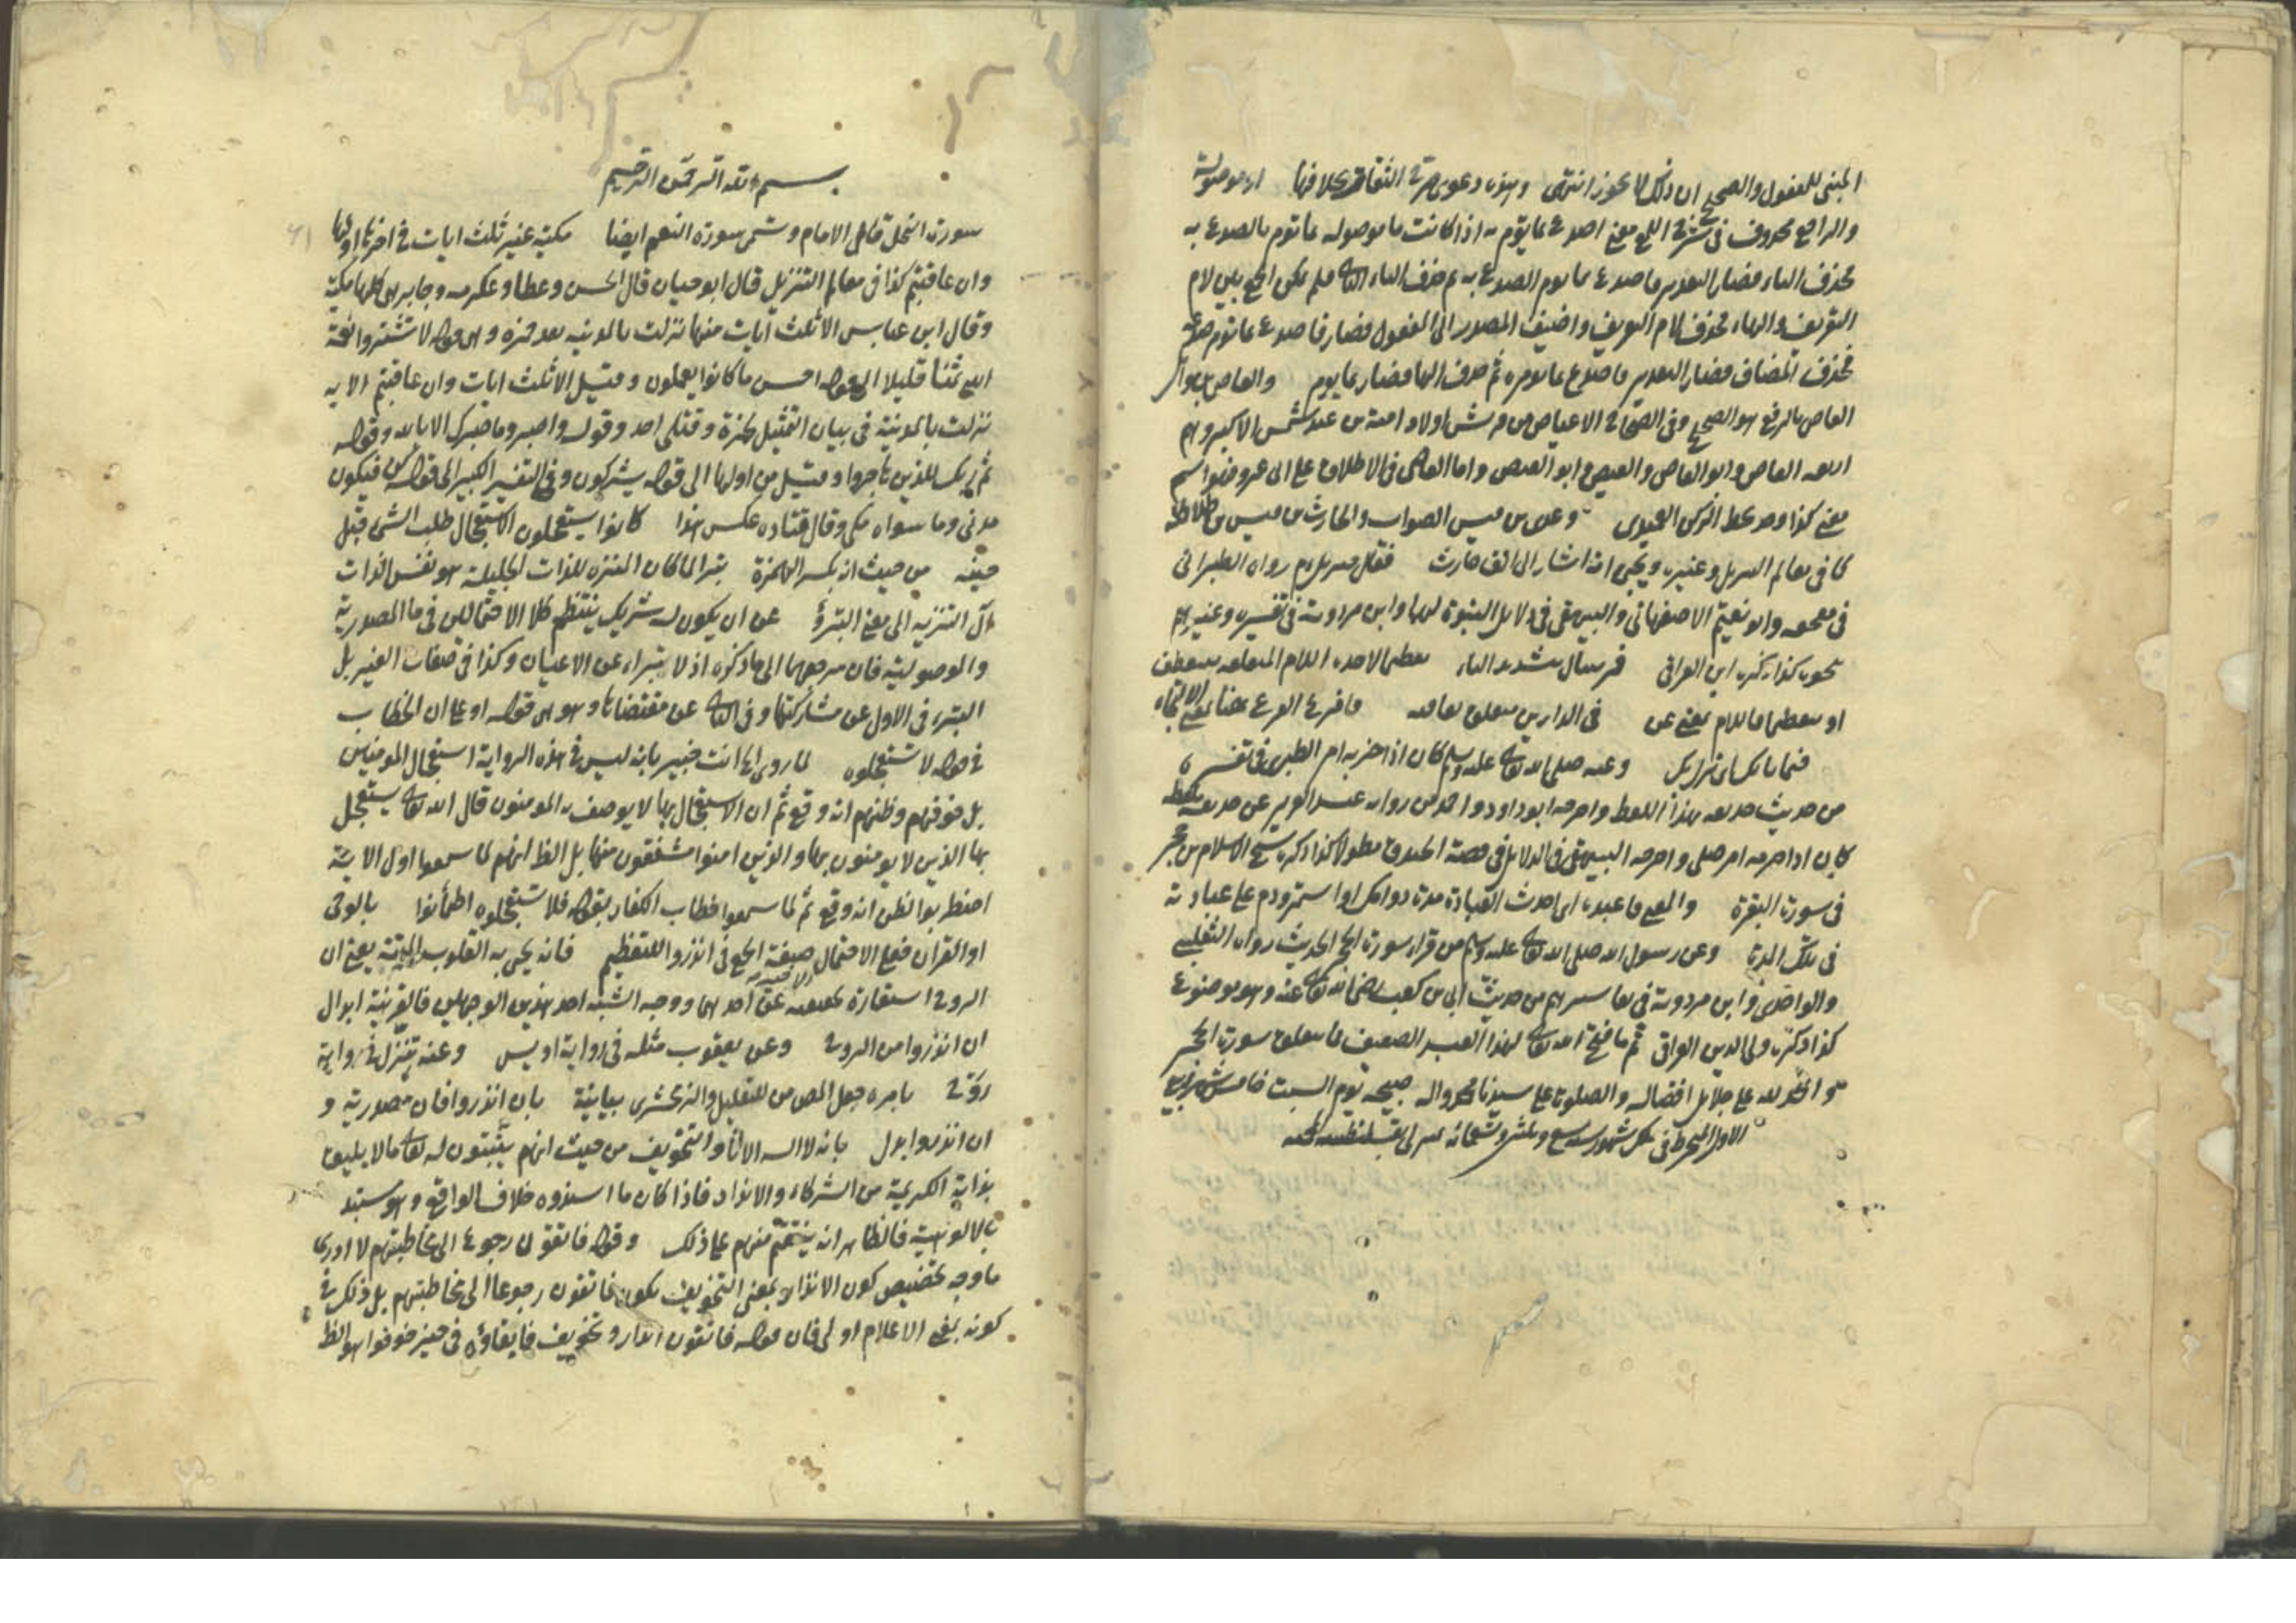 المبنى للمفعول والصحيح ان ذلك لا يجوز انتهى وهذه دعوى صرح الثقات بخلافها او موصولة
والراجع محذوف فى شرح اللمع معنى اصدع بما تؤمر به اذا كانت ما موصولة بما تؤمر بالصدع به
فحذف الباء فصار التقدير فاصدع بما تؤمر الصدع به ثم حذف الباء فلم يمكن الجمع بين لام
التعريف والهاء فحذف لام التعريف واضيف المصدر الى المفعول فصار فاصدع بما تؤمر صدعه
فحذف المضاف فصار التقدير فاصدع بما تؤمره ثم حذف الها فصار بما تؤمر والعاص بن وائل
العاص بالرفع هو الصحيح وفى الصحاح الاعياص من قريش اولاد امية بن عبد شمس الاكبر وهم
اربعة العاص وابو العاص والعيص وابو العيص واما العاصى فى الاطلاق
معنى كذا وجد بخط وعدى بن قيس الصواب والحارث بن قيس
كما فى معالم التنزيل وغيره اشار الى حارث فقال جبريل رواه الطبرانى
فى معجمه وابو نعيم الاصفهانى والبيهقى فى دلائل النبوة لهما وابن مردويه فى تفسيره وغيرهم
نحوه كذا ذكره ابن العراقى فمر بنبال بتشديد الباء تعظما لاخذه اللام المتعلقة
او تعظما فاللام بمعنى عن فى الدارين متعلق بعاقبة فافزع الفزع هنا بمعنى الالتجاء
فيما نابك اى نزل بك وعنه صلى الله تعالى عليه وسلم كان اذا حزبه امر الطبرى فى تفسيره
من حديث حذيفة بهذا اللفظ واخرجه ابو داود واحمد من رواية عبد العزيز عن حذيفة بلفظ
كان اذا حزبه امر صلى واخرجه البيهقى فى الدلائل فى قصة الخندق مطولا كذا ذكره شيخ الاسلام بن حجر
فى سورة البقرة والمعنى فاعبده العبادة مدة دوامك او استمر ودم على عبادته
فى تلك المدة وعن رسول الله صلى الله تعالى عليه وسلم من قرا سورة الحجر الحديث رواه الثعلبى
والواحدى وابن مردويه فى تفاسيرهم من حديث ابى بن كعب رضى الله تعالى عنه وهو موضوع
كذا ذكره ولى الدين العراقى ثم ما فتح الله تعالى لهذا العبد الضعيف فيما يتعلق بسورة الحجر
والحمد لله على جلايل افضاله والصلوة على سيدنا محمد واله صبيحة يوم السبت خامس شهر ربيع
الاول المنخرط فى سلك شهور سنة
بسم الله الرحمن الرحيم
سورة النحل قال الامام وتسمى سورة النعم ايضا مكية غير ثلث ايات فى اخرها اولها
وان عاقبتم كذا فى معالم التنزيل قال ابو حيان قال الحسن وعطا وعكرمه وجابر هى كلها مكية
وقال ابن عباس الا ثلث ايات منها نزلت بالمدينة بعد حمزة وهى قوله لا تشتروا بعهد
الله ثمنا قليلا الى قوله احسن ما كانوا يعملون وقيل الا ثلث ايات وان عاقبتم الاية
نزلت بالمدينة فى بيان التمثيل بحمزة وقتلى احد وقوله واصبر وما صبرك الا بالله وقوله
ثم ان ربك للذين هاجروا وقيل من اولها الى قوله يشركون وفى التفسير الكبير الى قوله كن فيكون
مدنى وما سواه مكى وقال قتاده عكس هذا كانوا يستعجلون الاستعجال طلب الشى قبل
حينه من حيث انه بكسر الهمزة تبرا لما كان المنزه للذات الجليلة هو نفس الذات
آل التنزيه الى معنى التبرؤ عن ان يكون له شريك ينتظم كلا الاحتمالين فى ما المصدرية
والموصولية فان مرجعهما الى ما ذكره اذ لا تبراء عن الاعيان وكذا فى صفات الغير بل
التبرء فى الاول عن مشاركتها وفى الثانى عن مقتضاها وهو قوله او على ان الخطاب
فى قوله لا تستعجلوه لما روى انت خبير بانه ليس فى هذه الرواية استعجال المومنين
بل خوفهم وظنهم انه وقع ثم ان الاستعجال بها لا يوصف به المومنون قال الله تعالى يستعجل
بها الذين لا يومنون بها والذين امنوا مشفقون منها بل الظ انهم لما سمعوا اول الاية
اضطربوا لظن انه وقع ثم لما سمعوا خطاب الكفار بقوله فلا تستعجلوه اطمأنوا بالوحى
او القران فعلى الاحتمال صيغة الجمع فى انذروا للتعظيم فانه يحيى به القلوب الميتة يعنى ان
الروح استعارة احدهما ووجه الشبه احد هذين الوجهين فالقرينة ابدال
ان انذروا من الروح وعن يعقوب مثله فى رواية اويس وعنه تنزل فى رواية
روح بامره جعل المص من للتعليل والزمخشرى بيانية بان انذروا فان مصدرية و
ان انذروا بدل بانه لا اله الا انا والتخويف من حيث انهم يثبتون له تعالى ما لا يليق
بذاته الكريمة من الشركاء والانداد فاذا كان ما اسندوه خلاف الواقع وهو مستبد
بالالوهية فالظاهر انه ينتقم منهم على ذلك وقوله فاتقون رجوع الى مخاطبتهم لا ادرى
ما وجه تخصيص كون الانذار بمعنى التخويف بكون فاتقون رجوعا الى مخاطبتهم بل ذلك فى
كونه بمعنى الاعلام اولى فان قوله فاتقون انذار وتخويف فابقاؤه فى حيز خوفوا هو الظ